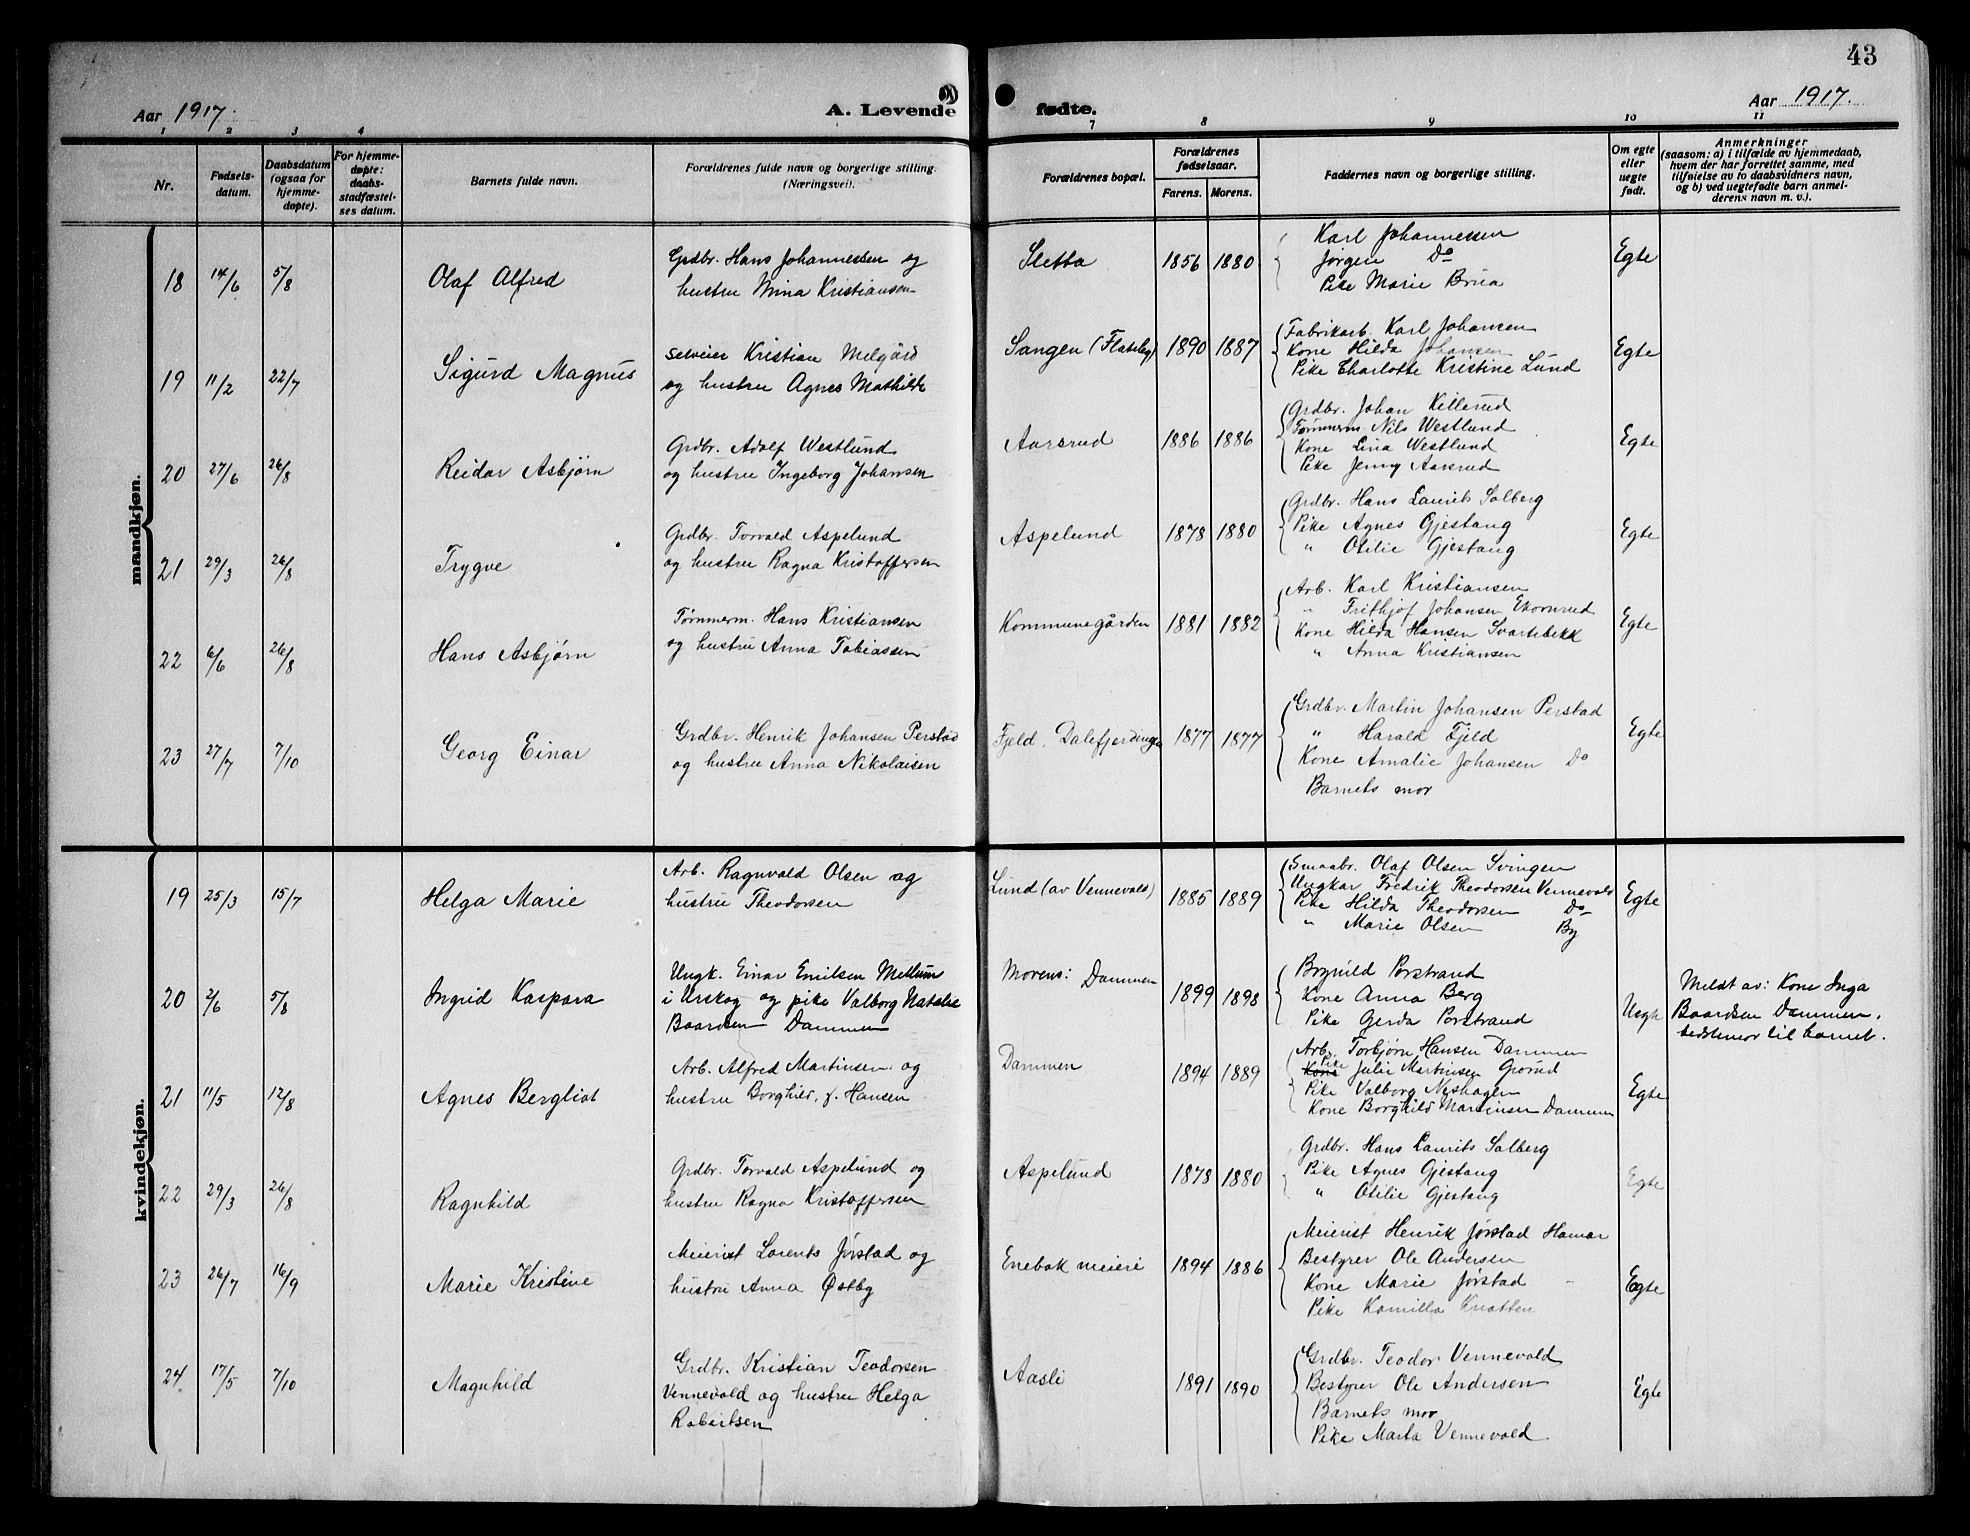 43
Aar 1917.
A. Levende fødte.
Aar 1917.
1 2 3 4 7 8 9 10 11
Nr.
Fødsels-
datum.
Daabsdatum
(ogsaa for
hjemme-
døpte).
For hjemme-
døpte:
daabs-
stadfæstel-
ses datum.
Barnets fulde navn.
Forældrenes fulde navn og borgerlige stilling.
(Næringsvei).
Forældrenes bopæl.
Forældrenes
fødselsaar.
Farens. Morens.
Faddernes navn og borgerlige stilling.
Om egte
eller
uegte
født.
Anmerkninger
(saasom: a) i tilfælde av hjemmedaab,
hvem der har forrettet samme, med
tilføielse av to daabsvidners navn,
og b) ved uegtefødte barn anmel-
derens navn m. v.).
mandkjøn.
18 14/6 5/8 Olaf Alfred
Grdbr. Hans Johannessen og
hustru Mina Kristiansen
Sletta 1856 1880
Karl Johannessen
Jørgen Do
Pike Marie Brua
Egte
19 11/2 22/7 Sigurd Magnus
Selveier Kristian Melgård
og hustru Agnes Mathilde
Sangen (Flateby) 1890 1887
Fabrikarb. Karl Johansen
Kone Hilda Johansen
Pike Charlotte Kristine Lund
Egte
20 27/6 26/8 Reidar Asbjørn
Grdbr. Adolf Westlund
og hustru Ingeborg Johansen
Aarsrud 1886 1886
Grdbr. Johan Killerud
Tømmerm. Nils Westlund
Kone Lina Westlund
Pike Jenny Aarsrud
Egte
21 29/3 26/8 Trygve
Grdbr. Torvald Aspelund
og hustru Ragna Kristoffersen
Aspelund 1878 1880
Grdbr. Hans Laurits Solberg
Pike Agnes Gjestang
" Otilie Gjestang
Egte
22 6/6 26/8 Hans Asbjørn
Tømmerm. Hans Kristiansen
og hustru Anna Tobiassen
Kommunegården 1881 1882
Arb. Karl Kristiansen
" Frithjof Johansen Ekornrud
Kone Hilda Hansen Svartebekk
" Anna Kristiansen
Egte
23 27/7 7/10 Georg Einar
Grdbr. Henrik Johansen Perstad
og hustru Anna Nikolaisen
Fjeld, Dalefjerdingen 1877 1877
Grdbr. Martin Johansen Perstad
" Harald Fjeld
Kone Amalie Johansen Do
Barnets mor
Egte
kvindekjøn.
19 25/3 15/7 Helga Marie
Arb. Ragnvald Olsen og
hustru Theodorsen
Lund (av Vennevald) 1885 1889
Smaabr. Olaf Olsen Svingen
Ungkar Fredrik Theodorsen Vennevald
Pike Hilda Theodorsen Do
" Marie Olsen By
Egte
20 2/6 5/8 Ingrid Kaspara
Ungk. Einar Emilsen Mellum
i Urskog og pike Valborg Natalie
Baardsen Dammen
Morens: Dammen 1899 1898
Brynild Porstrand
Kone Anna Berg
Pike Gerda Porstrand
Uegte
Meldt av: Kone Inga
Baardsen Dammen,
bedstemor til barnet.
21 11/5 12/8 Agnes Bergliot
Arb. Alfred Martinsen og
hustru Borghild, f. Hansen
Dammen 1894 1889
Arb. Torbjørn Hansen Dammen
Pike Julie Martinsen Grorud
Pike Valborg Nyshagen
Kone Borghild Martinsen Dammen
Egte
22 29/3 26/8 Ragnhild
Grdbr. Torvald Aspelund og
hustru Ragna Kristoffersen
Aspelund 1878 1880
Grdbr. Hans Laurits Solberg
Pike Agnes Gjestang
" Otilie Gjestang
Egte
23 26/7 16/9 Marie Kristine
Meierist Lorents Jørstad og
hustru Anna Østby
Enebak meieri 1894 1886
Meierist Henrik Jørstad Hamar
Bestyrer Ole Andersen
Kone Marie Jørstad
Pike Kamilla Knatten
Egte
24 17/5 7/10 Magnhild
Grdbr. Kristian Teodorsen
Vennevold og hustru Helga
Robertsen
Aasli 1891 1890
Grdbr. Teodor Vennevold
Bestyrer Ole Andersen
Barnets mor
Pike Marta Vennevold.
Egte